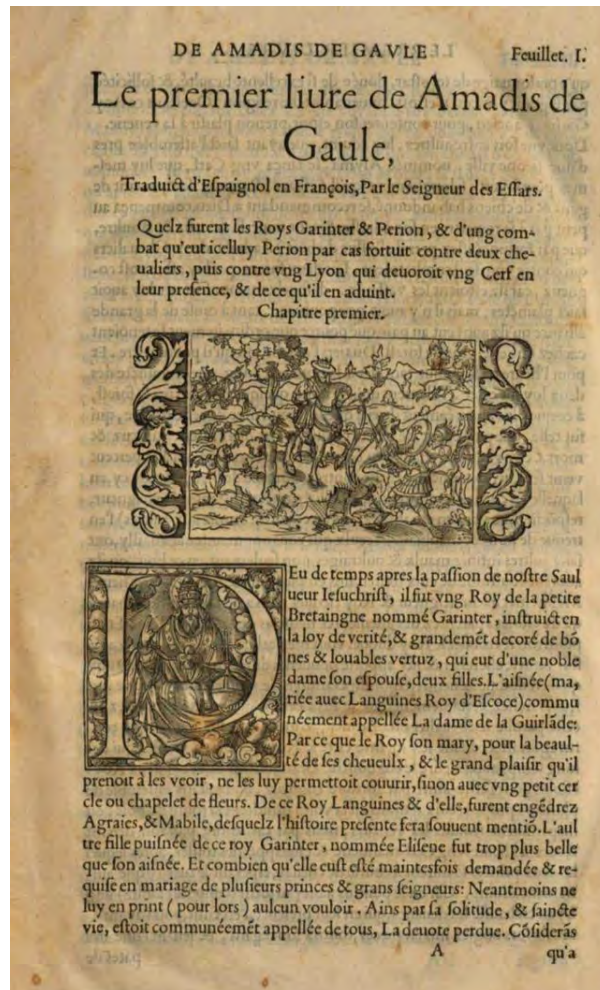 DE AMADIS DE GAVLE
Feuillet. I.
Le premier liure de Amadis de
Gaule,
Traduict d'Eſpaignol en François, Par le Seigneur des Eſſars.
Quelz furent les Roys Garinter & Perion, & d'ung com-
bat qu'eut icelluy Perion par cas fortuit contre deux che-
ualiers, puis contre vng Lyon qui deuoroit vng Cerf en
leur preſence, & de ce qu'il en aduint.
Chapitre premier.
PEu de temps apres la paſſion de noſtre Saul
ueur Ieſuchriſt, il fut vng Roy de la petite
Bretaingne nommé Garinter, inſtruict en
la loy de verité, & grandemẽt decoré de bõ
nes & louables vertuz, qui eut d'une noble
dame ſon eſpouſe, deux filles. L'aiſnée (ma,
riée auec Languines Roy d'Eſcoce) commu
néement appellée La dame de la Guirlãde:
Par ce que le Roy ſon mary, pour la beaul-
té de ſes cheueulx, & le grand plaiſir qu'il
prenoit à les veoir, ne les luy permettoit couurir, ſinon auec vng petit cer
cle ou chapelet de fleurs. De ce Roy Languines & d'elle, furent engẽdrez
Agraies, & Mabile, deſquelz l'hiſtoire preſente fera ſouuent mentiõ. L'aul
tre fille puiſnée de ce roy Garinter, nommée Eliſene fut trop plus belle
que ſon aiſnée. Et combien qu'elle euſt eſté maintesfois demandée & re-
quiſe en mariage de pluſieurs princes & grans ſeigneurs: Neantmoins ne
luy en print ( pour lors ) aulcun vouloir. Ains par ſa ſolitude, & ſaincte
vie, eſtoit communéemẽt appellée de tous, La deuote perdue. Cõſiderãs
A
qu'a